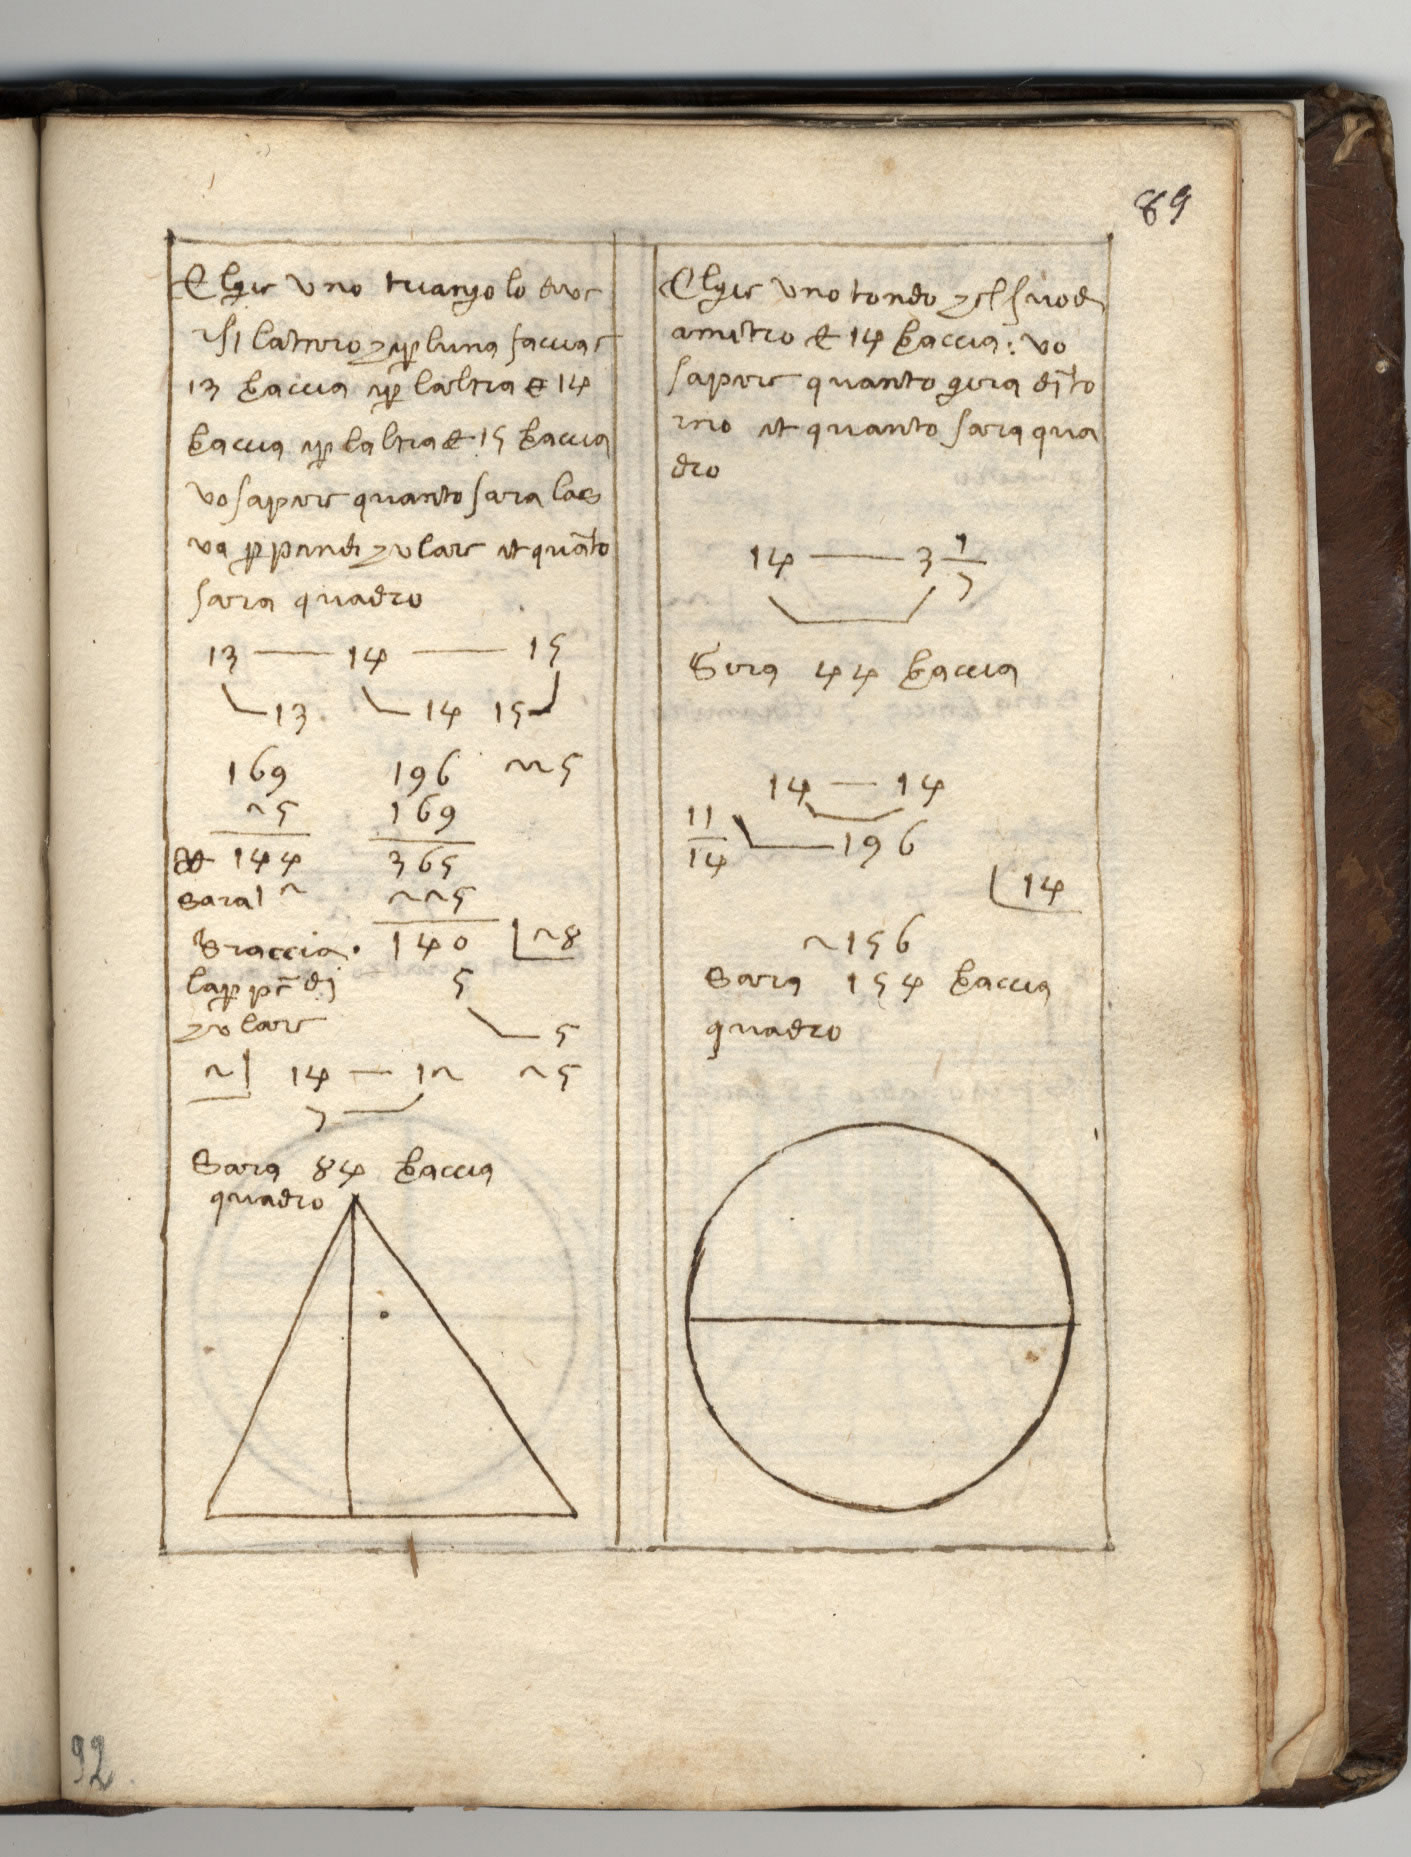 89
Elgie uno triangolo diver
si latero che per luna faccia é
13 braccia per laltra é 14
braccia per laltra é 15 braccia
vo sapere quanto sara la s
va perpendichulare et quãto
sara quadro
13 — 14 — 15
13 14 15
169 196 225
25 169
é 144 365
sara 12 225
Braccia. 140 28
la perpẽdi 5
chulare 5
2| 14 — 12 25
7
Sara 84 braccia
quadro
Elgie uno tondo chel suo di
amitro é 14 braccia: vo
sapere quanto gira dĩto
rno et quanto sara qua
dro
14 — 3 1/7
Gira 44 braccia
14 — 14
11/14 196
14
2156
Sara 154 braccia
quadro
92